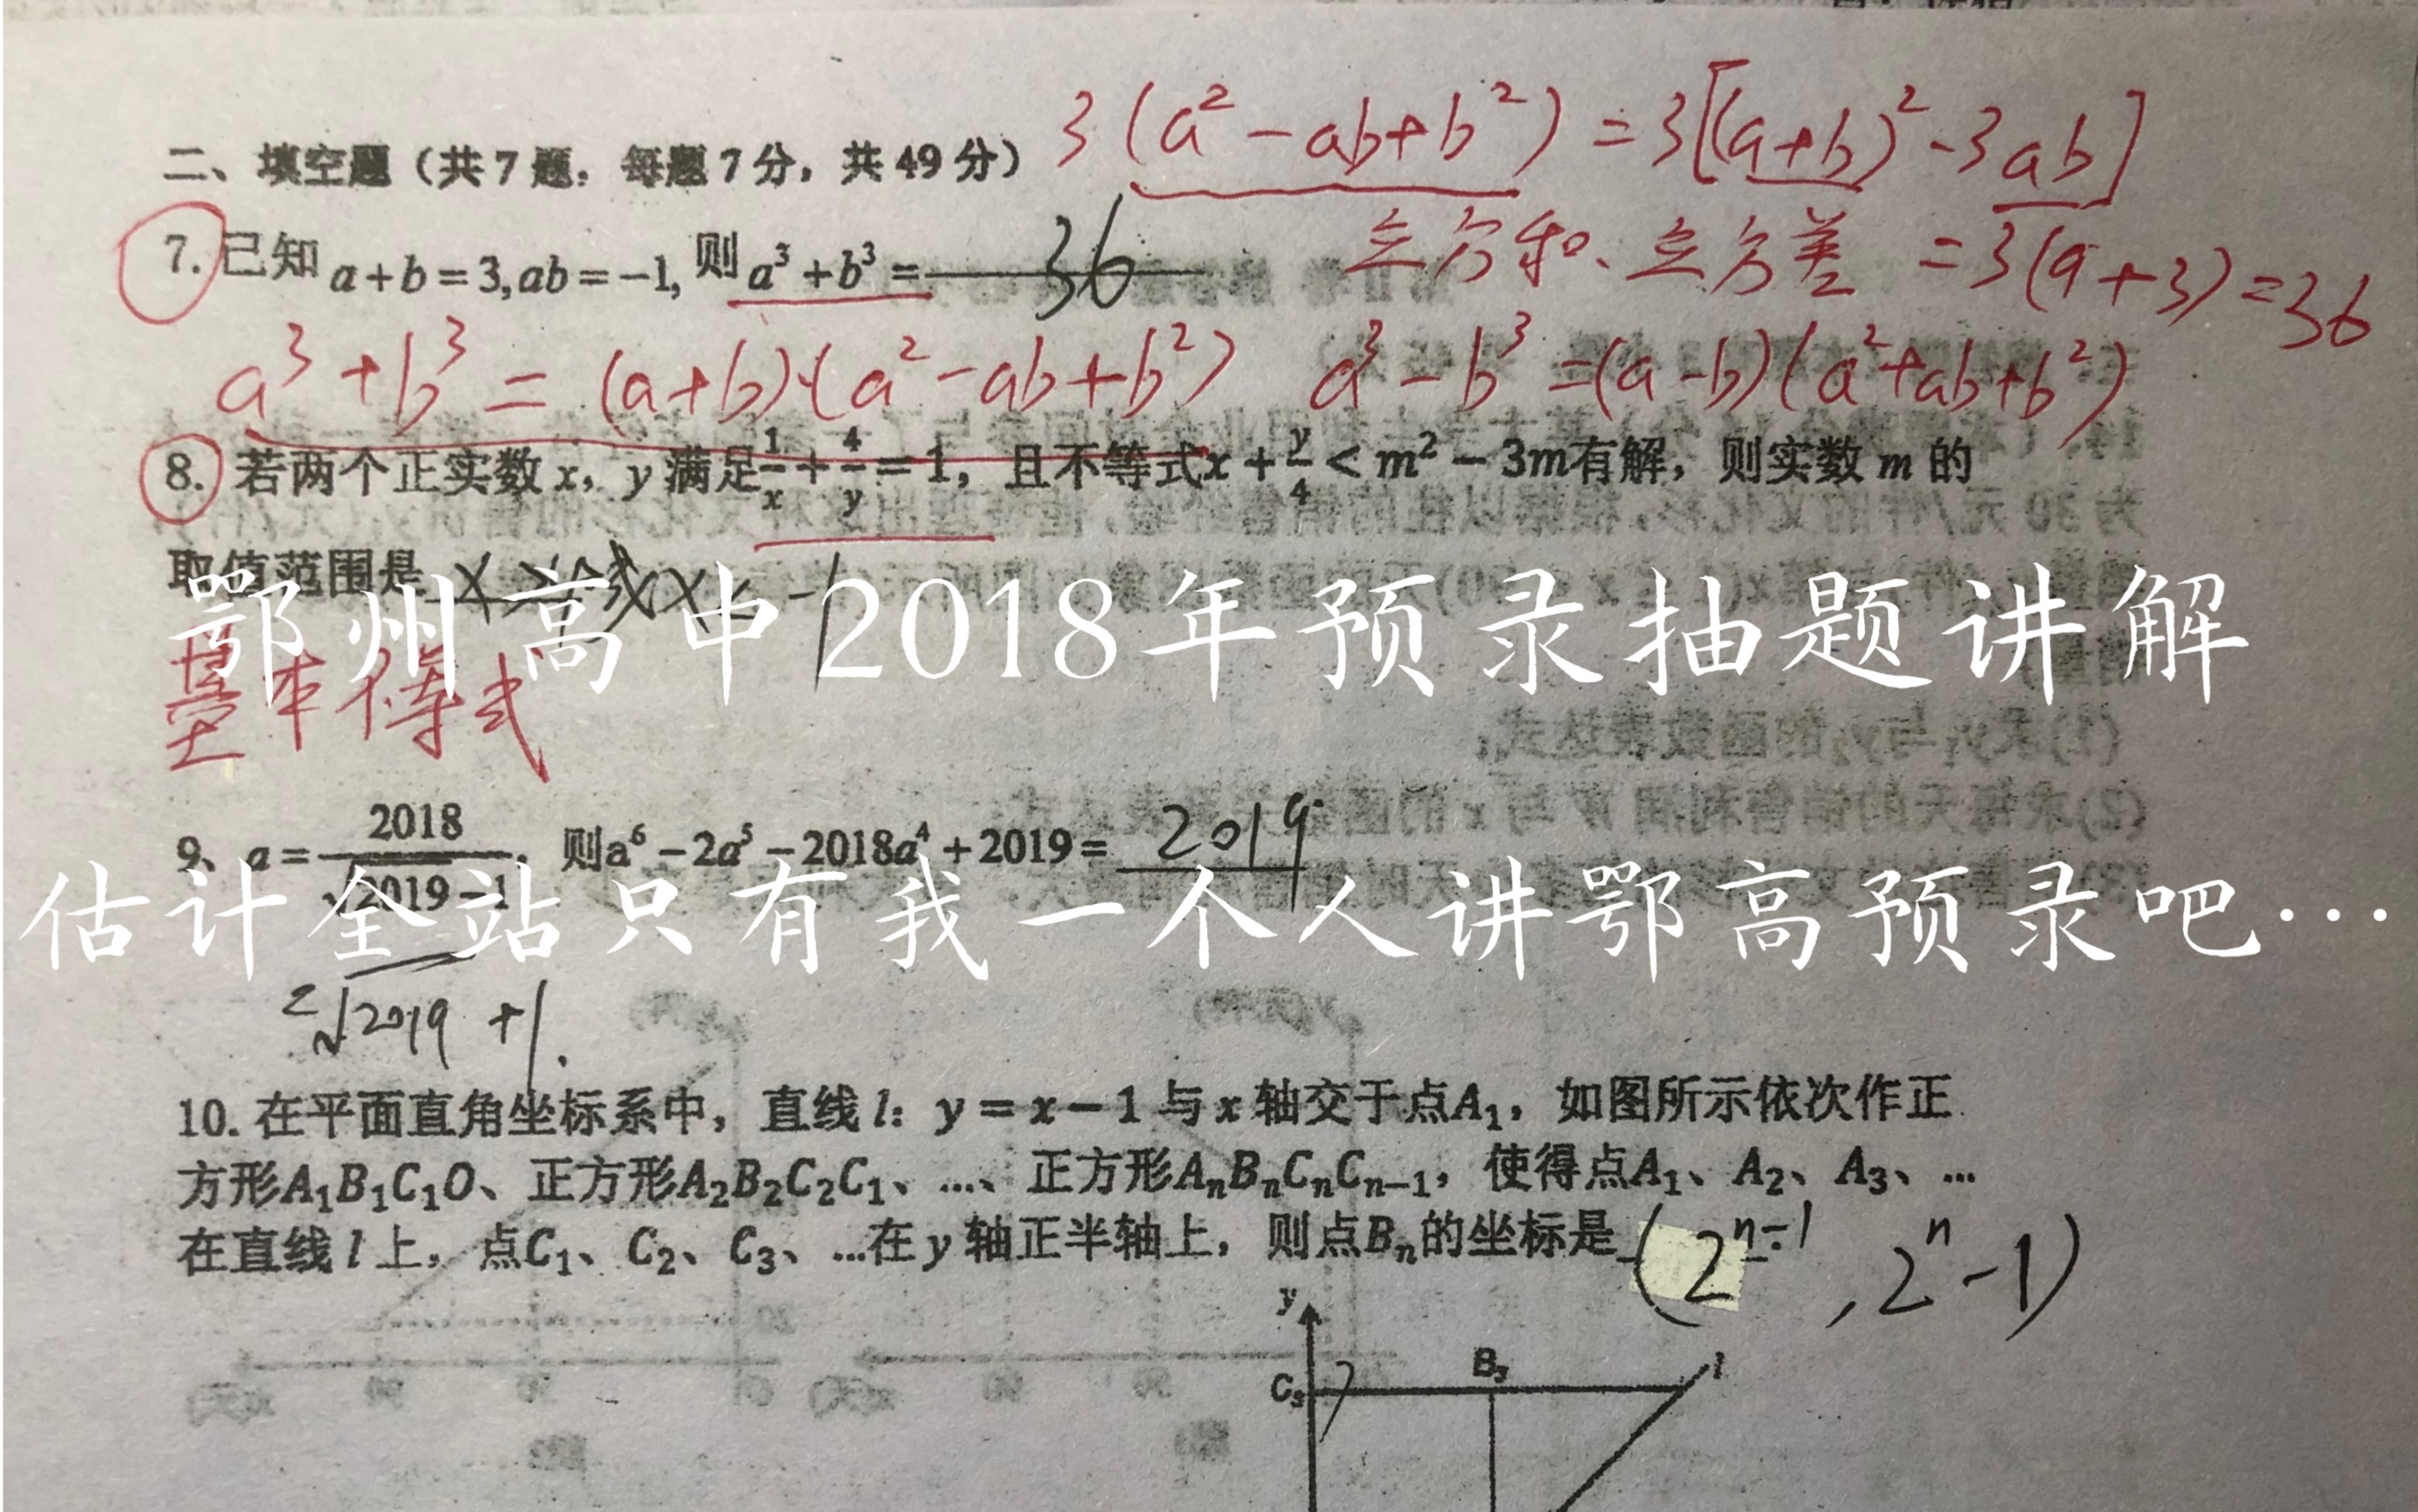 3(a²-ab+b²)=3[(a+b)²-3ab]
二、填空题（共7题，每题7分，共49分）
7. 已知 a+b=3, ab=-1, 则 a³+b³= 36
立方和、立方差 =3(9+3)=36
a³+b³=(a+b)·(a²-ab+b²) a³-b³=(a-b)(a²+ab+b²)
8. 若两个正实数 x，y 满足 1/x + 4/y = 1，且不等式 x + y/4 < m² - 3m 有解，则实数 m 的
取值范围是 x>4或x<-1
鄂州高中2018年预录抽题讲解
基本不等式
9、a= 2018/(√2019-1)，则a⁶-2a⁵-2018a⁴+2019= 2019
估计全站只有我一个人讲鄂高预录吧…
√2019 +1.
10. 在平面直角坐标系中，直线 l：y=x-1 与 x 轴交于点A₁，如图所示依次作正
方形A₁B₁C₁O、正方形A₂B₂C₂C₁、…、正方形AₙBₙCₙCₙ₋₁，使得点A₁、A₂、A₃、…
在直线 l 上，点C₁、C₂、C₃、…在 y 轴正半轴上，则点Bₙ的坐标是 (2ⁿ⁻¹, 2ⁿ-1)
y
C₃ B₃ l